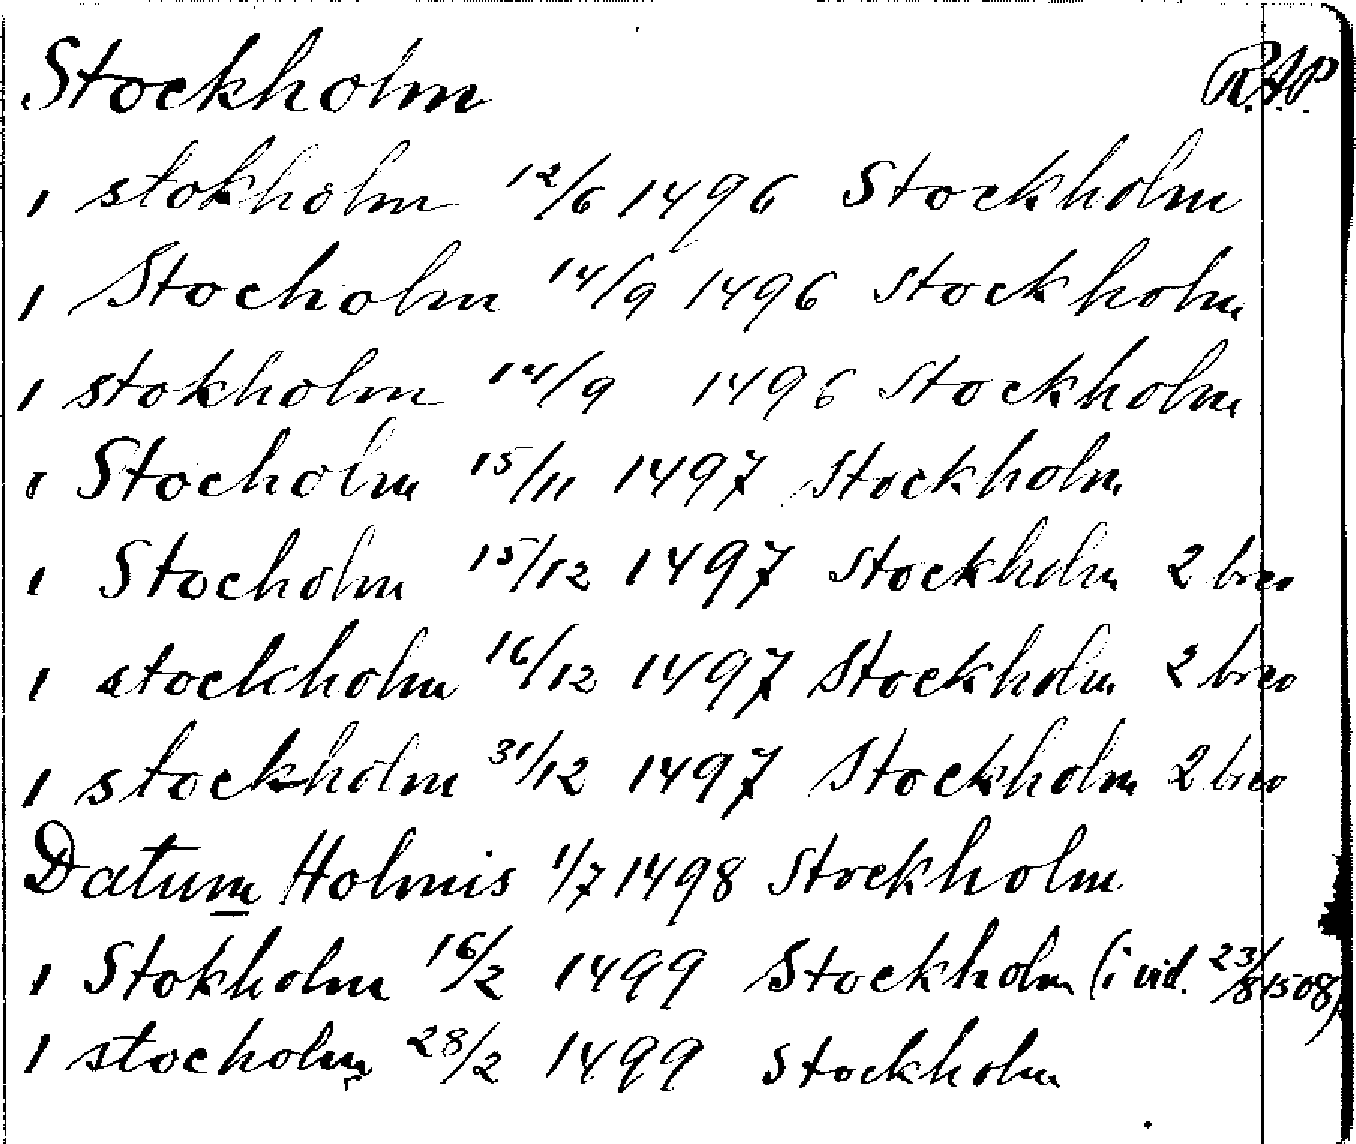 Stockholm R.A.P.
1 stokholm 12/6 1496 Stockholm
1 Stocholm 14/9 1496 Stockholm
1 stokholm 14/9 1496 Stockholm
1 Stocholm 15/11 1497 Stockholm
1 Stocholm 15/12 1497 Stockholm 2 brev
1 stockholm 16/12 1497 Stockholm 2 brev
1 stockholm 31/12 1497 Stockholm 2 brev
Datum Holmis 1/7 1498 Stockholm
1 Stokholm 16/2 1499 Stockholm (i vid. 23/8 1508)
1 stocholm 28/2 1499 Stockholm